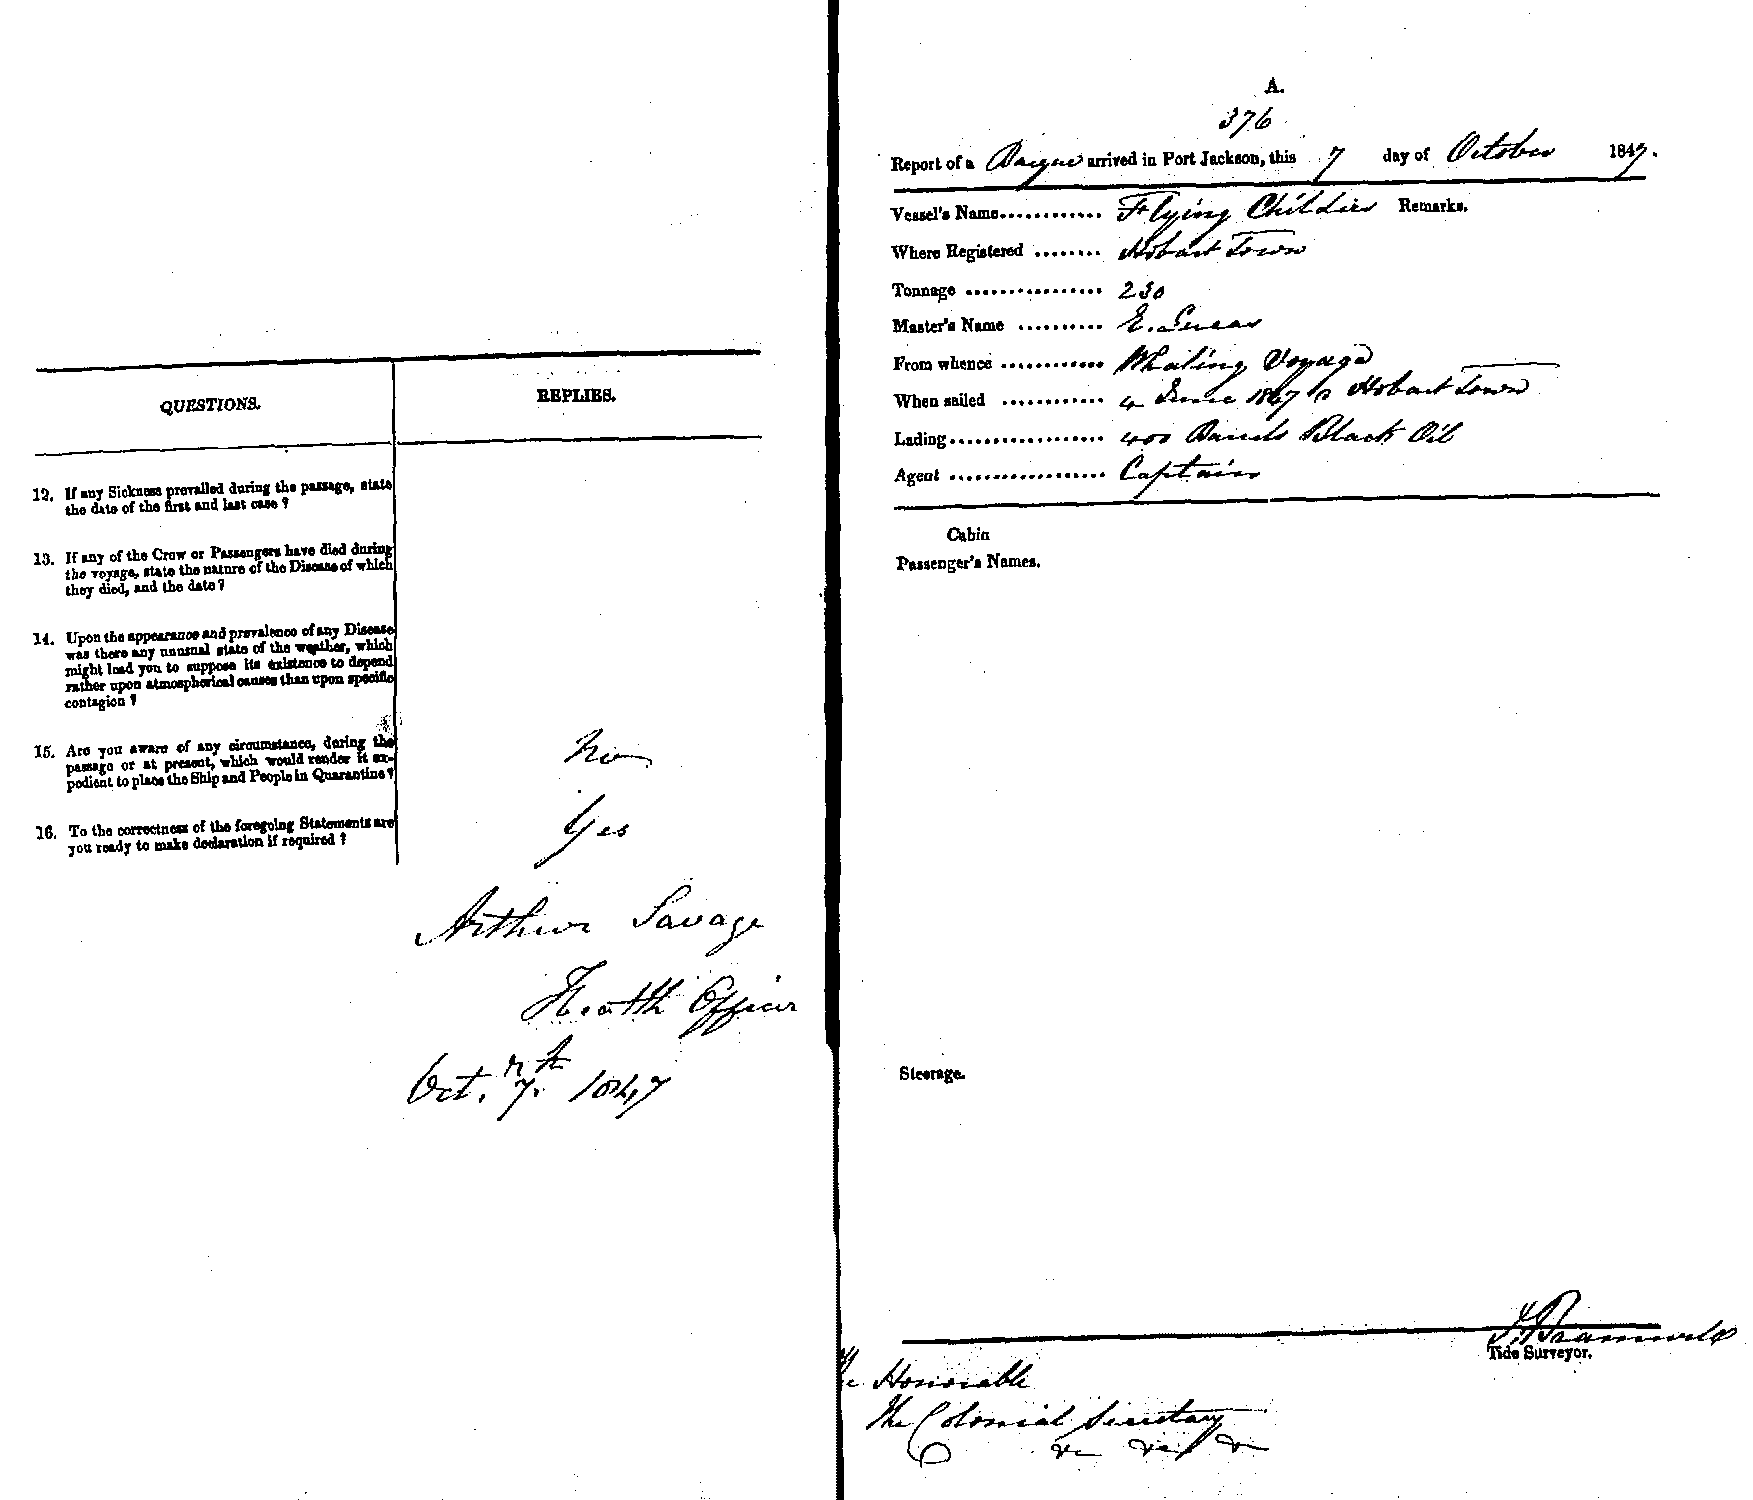 QUESTIONS.
REPLIES.
12. If any Sickness prevailed during the passage, state
the date of the first and last case ?
13. If any of the Crew or Passengers have died during
the voyage, state the nature of the Disease of which
they died, and the date ?
14. Upon the appearance and prevalence of any Disease
was there any unusual state of the weather, which
might lead you to suppose its existence to depend
rather upon atmospherical causes than upon specific
contagion ?
15. Are you aware of any circumstance, during the
passage or at present, which would render it ex-
pedient to place the Ship and People in Quarantine ?
No
16. To the correctness of the foregoing Statements are
you ready to make declaration if required ?
Yes
Arthur Savage
Health Officer
Oct. 7th 1847
A.
376
Report of a Barque arrived in Port Jackson, this 7 day of October 1847.
Vessel's Name............ Flying Childers Remarks.
Where Registered ........ Hobart Town
Tonnage ................ 230
Master's Name .......... E. Lucas
From whence ............ Whaling Voyage
When sailed ............ 4 June 1847 Hobart Town
Lading.................. 400 Black Oil
Agent .................. Captain
Cabin
Passenger's Names.
Steerage.
Tide Surveyor.
The Honorable
The Colonial Secretary